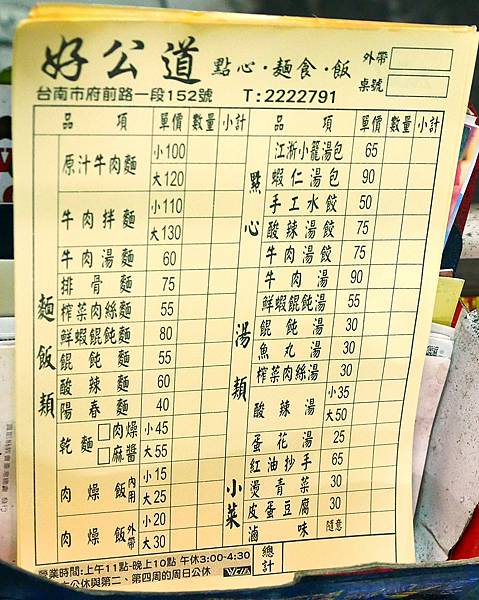 好公道 點心·麵食·飯
外帶
桌號
台南市府前路一段152號 T:2222791
品項 單價 數量 小計
麵飯類
原汁牛肉麵 小100 大120
牛肉拌麵 小110 大130
牛肉湯麵 60
排骨麵 75
榨菜肉絲麵 55
鮮蝦餛飩麵 80
餛飩麵 55
酸辣麵 60
陽春麵 40
乾麵 □肉燥 □麻醬 小45 大55
肉燥飯 內用 小15 大25
肉燥飯 外帶 小20 大30
品項 單價 數量 小計
點心
江浙小籠湯包 65
蝦仁湯包 90
手工水餃 50
酸辣湯餃 75
牛肉湯餃 75
湯類
牛肉湯 90
鮮蝦餛飩湯 55
餛飩湯 30
魚丸湯 30
榨菜肉絲湯 30
酸辣湯 小35 大50
蛋花湯 25
小菜
紅油抄手 65
燙青菜 30
皮蛋豆腐 30
滷味 隨意
總計
營業時間:上午11點-晚上10點 午休3:00-4:30
公休與第二、第四周的周日公休